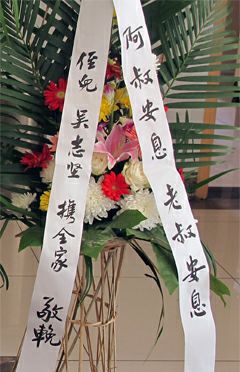 阿叔安息 老叔安息
侄儿 吴志坚 携全家 敬輓